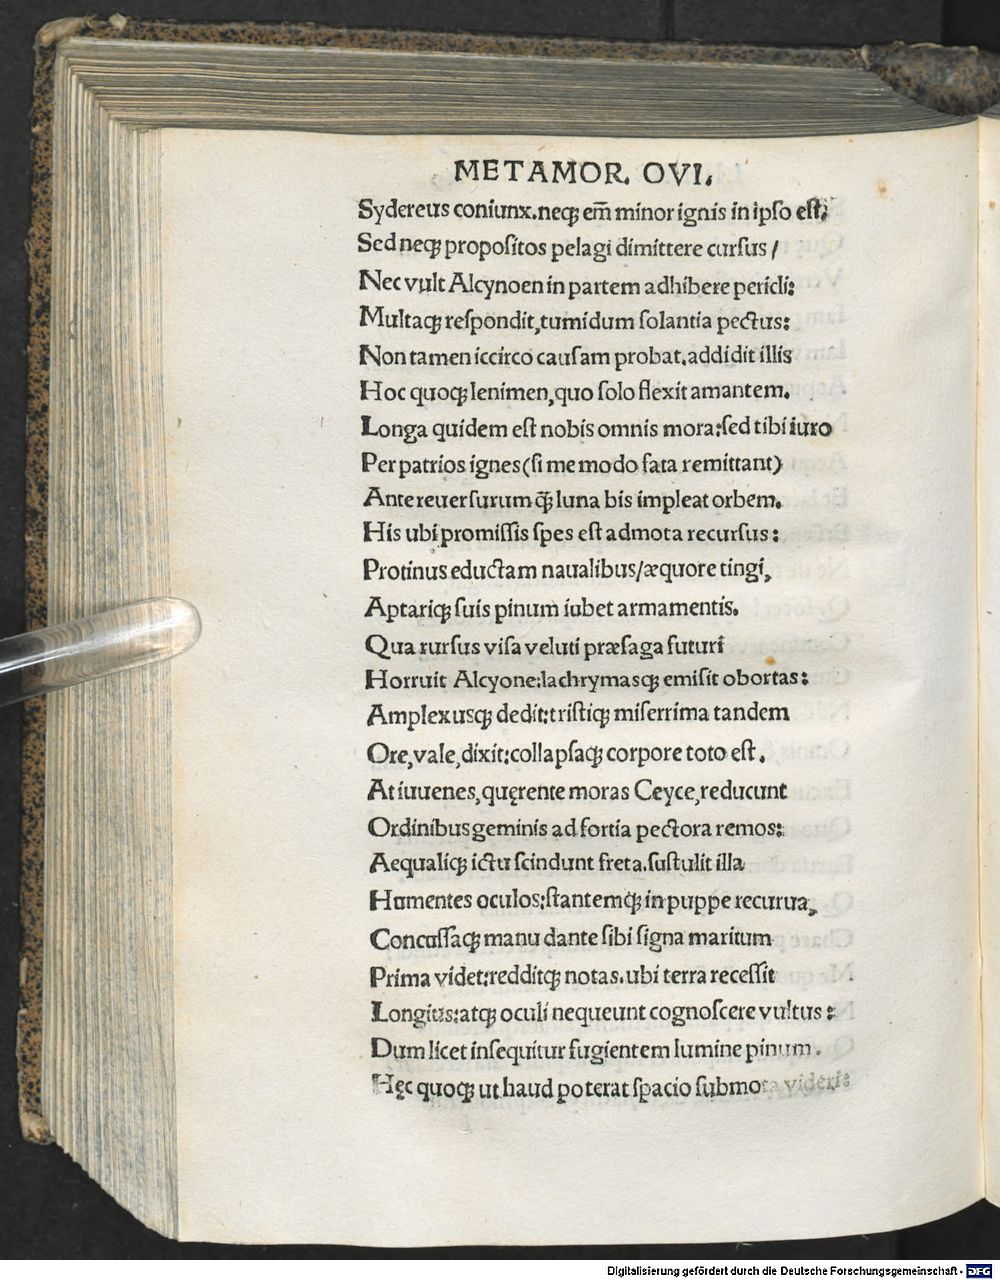 METAMOR. OVI.
Sydereus coniunx.neqꝫ em̅ minor ignis in ipſo eſt;
Sed neqꝫ propoſitos pelagi dimittere curſus /
Nec vult Alcynoen in partem adhibere pericli:
Multaqꝫ reſpondit,tumidum ſolantia pectus:
Non tamen iccirco cauſam probat.addidit illis
Hoc quoqꝫ lenimen,quo ſolo flexit amantem.
Longa quidem eſt nobis omnis mora:ſed tibi iuro
Per patrios ignes(ſi me modo fata remittant)
Ante reuerſurum q̄ꝫ luna bis impleat orbem.
His ubi promiſſis ſpes eſt admota recurſus:
Protinus eductam naualibus/æquore tingi,
Aptariqꝫ ſuis pinum iubet armamentis.
Qua rurſus viſa veluti præſaga futuri
Horruit Alcyone:lachrymasqꝫ emiſit obortas:
Amplexusqꝫ dedit:triſtiqꝫ miſerrima tandem
Ore,vale,dixit:collapſaqꝫ corpore toto eſt.
At iuuenes,quęrente moras Ceyce,reducunt
Ordinibus geminis ad fortia pectora remos:
Aequaliqꝫ ictu ſcindunt freta.ſuſtulit illa
Humentes oculos:ſtantemqꝫ in puppe recurua,
Concuſſaqꝫ manu dante ſibi ſigna maritum
Prima videt:redditqꝫ notas.ubi terra receſſit
Longius:atqꝫ oculi nequeunt cognoſcere vultus:
Dum licet inſequitur fugientem lumine pinum.
Hęc quoqꝫ ut haud poterat ſpacio ſubmota videri:
Digitalisierung gefördert durch die Deutsche Forschungsgemeinschaft - DFG